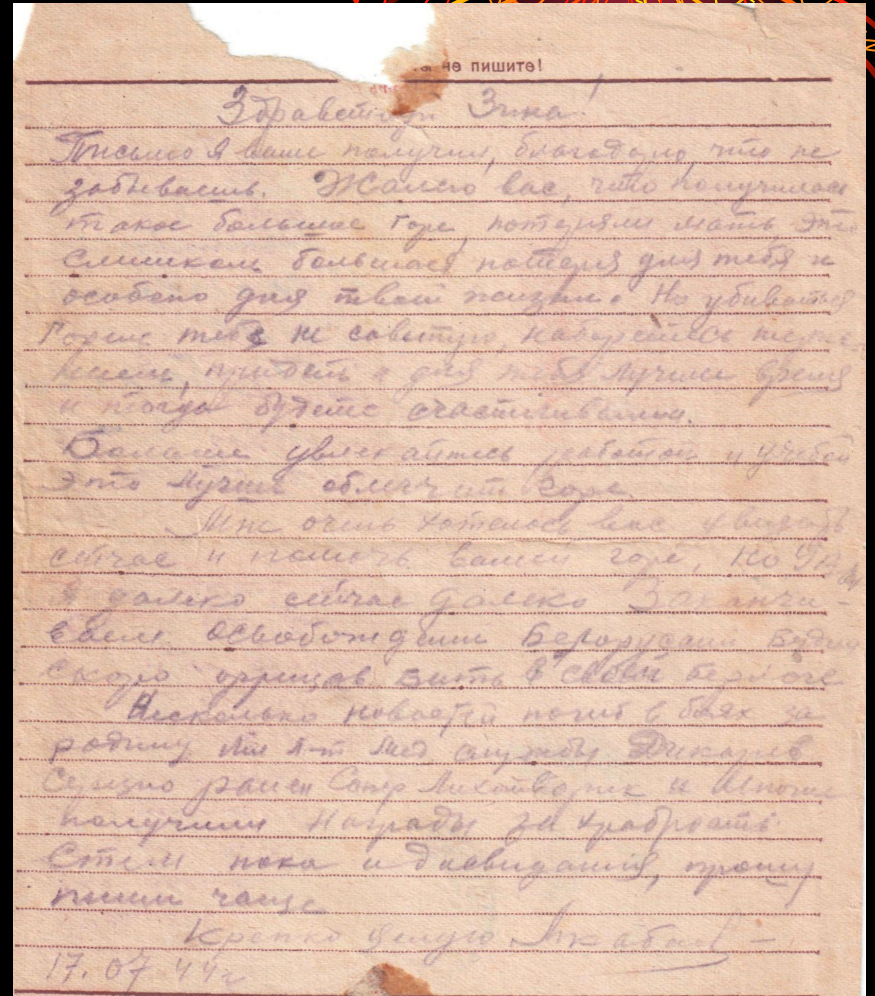 не пишите!
Здравствуй Зина!
Письмо я ваше получил, благодарю, что не
забываешь. Жалею вас, что получилось
такое большое горе, потеряли мать это
слишком большая потеря для тебя и
особено для твоей жизни. Но убиваться
горем тебе не советую, наберитесь терпе-
нием, придеть и для тебя лучшее время
и тогда будете счастливыми.
Больше увлекайтесь работой и учебой
это лучше облегчит горе.
Мне очень хотелось вас увидать
сейчас и помочь вашей горе, но
я далеко сейчас далеко Заканчи-
ваем освобождение Белорусии Будем
скоро фрицав Бить в своей берлоге
Несколько новостей погиб в боях за
родину Мл л-т Мед службы Дикарев
Серезно ранен Сапер и многие
получили Награды за храбрость
Стем пока и досвидания, прошу
пиши чаще
Крепко целую
17.07 44г